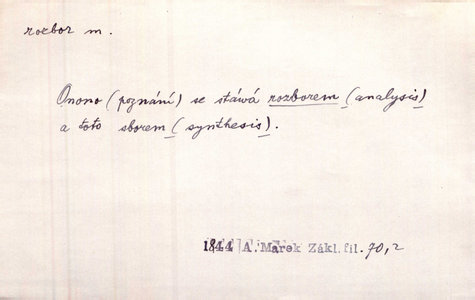 rozbor m.
Onono (poznání) se stáwá rozborem (analysis)
a toto sborem (synthesis).
1844 A. Marek Zákl. fil. 70,2